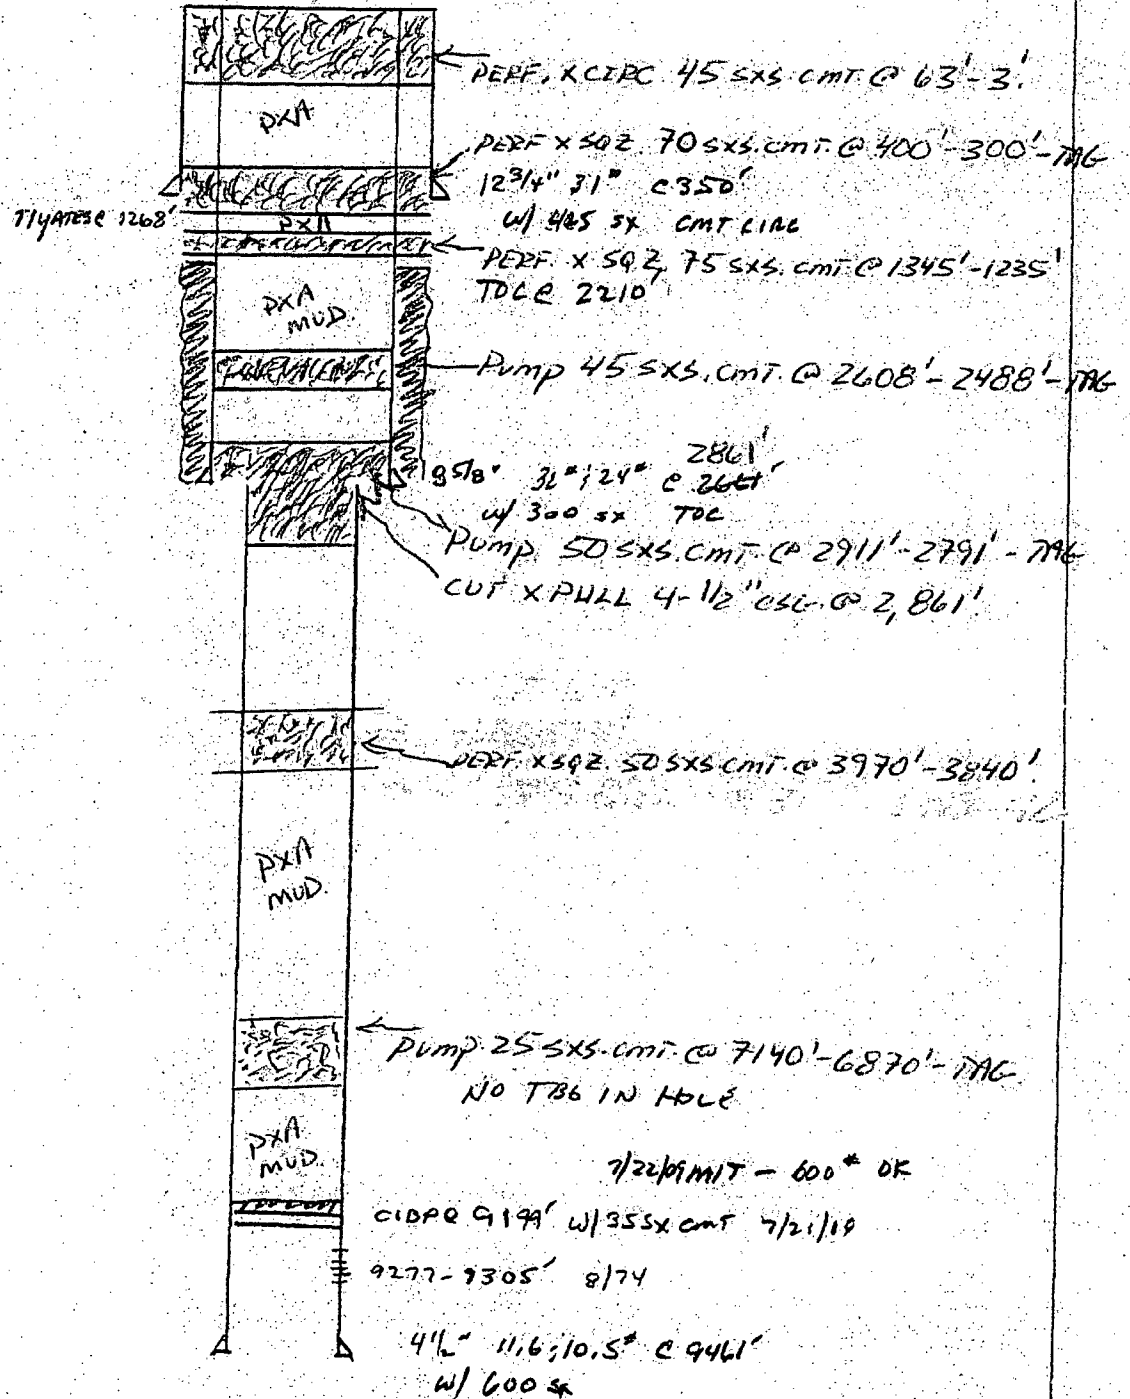 PERF. X CIRC 45 SXS. CMT @ 63'-3'.
PXA
PERF X SQZ. 70 SXS. CMT. @ 400'-300'-TAG
12 3/4" 31# @ 350'
T/YATES @ 1268'
PXA
W/ 425 SX CMT CIRC
PERF. X SQZ 75 SXS. CMT @ 1345'-1235'
TOC @ 2210'
PXA
MUD.
Pump 45 SXS. CMT. @ 2608'-2488'-TAG
2861'
9 5/8" 32#; 24# @
W/ 300 SX TOC
Pump 50 SXS. CMT @ 2911'-2791'-TAG
CUT X PULL 4-1/2" CSG. @ 2,861'.
PERF X SQZ. 50 SXS CMT. @ 3970'-3840'.
PXA
MUD.
Pump 25 SXS. CMT. @ 7140'-6870'-TAG
NO TBG IN HOLE
PXA
MUD.
7/22/09 MIT - 600# OK
CIBP @ 9199' W/ 35 SX CMT 7/21/
9277-9305' 8/74
4 1/2" 11.6; 10.5# @ 9461'
W/ 600 SX